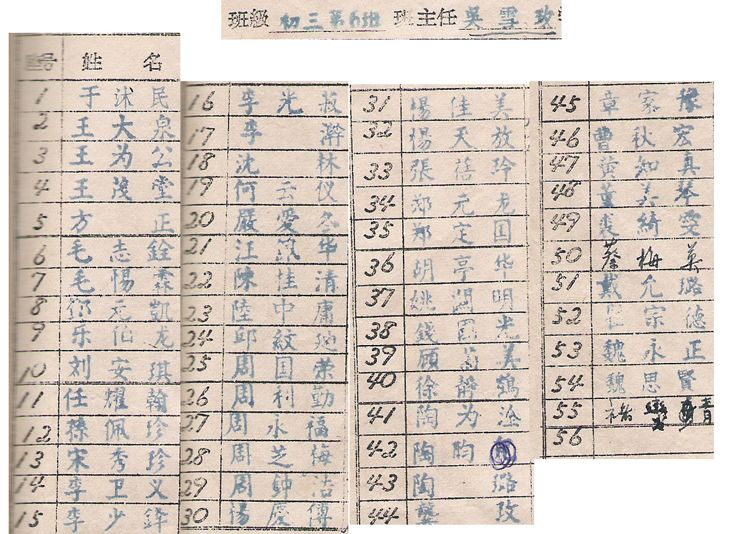 班級 初三第六班 班主任 吳雪玫
姓 名
1 于沭民
2 王大泉
3 王为公
4 王茂堂
5 方正
6 毛志銓
7 毛惕森
8 邓元凱
9 乐伯龙
10 刘安琪
11 任耀翰
12 孫佩珍
13 宋秀珍
14 李卫义
15 李少鋒
16 李光菽
17 李
18 沈林
19 何云仪
20 嚴愛冬
21 江 华
22 陳佳清
23 陸中庸
24 邱紋
25 周国荣
26 周利勤
27 周永福
28 周芝梅
29 周鈡浩
30 楊慶傅
31 楊佳美
32 楊天放
33 張蓓玲
34 郑元龙
35 郑定国
36 胡亭华
37 姚 明
38 錢國光
39 顧菊美
40 徐靜鶴
41 陶为淦
42 陶昀
43 陶璐
44 龔玫
45 章家豫
46 曹秋宏
47 黄知真
48 董美琴
49 裘綺雯
50 蔡梅英
51 戴允璐
52 宗德
53 魏永正
54 魏思賢
55
56